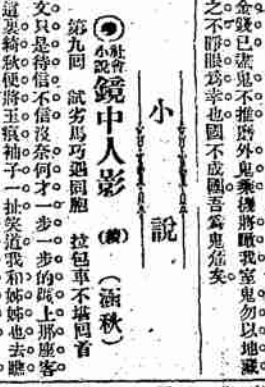 金錢已盡鬼不推磨外鬼乘機將瞰我室鬼勿以地藏
之不睜眼爲幸也國不成國吾爲鬼危矣
小說
社會小說 鏡中人影 (續) (涵秋)
第九回 試劣馬巧遇同胞 拉包車不堪回首
文只是待信不信沒奈何才一步一步的踱上那座客
這裏綺秋便將玉痕袖子一扯笑道我和姊姊也去瞧